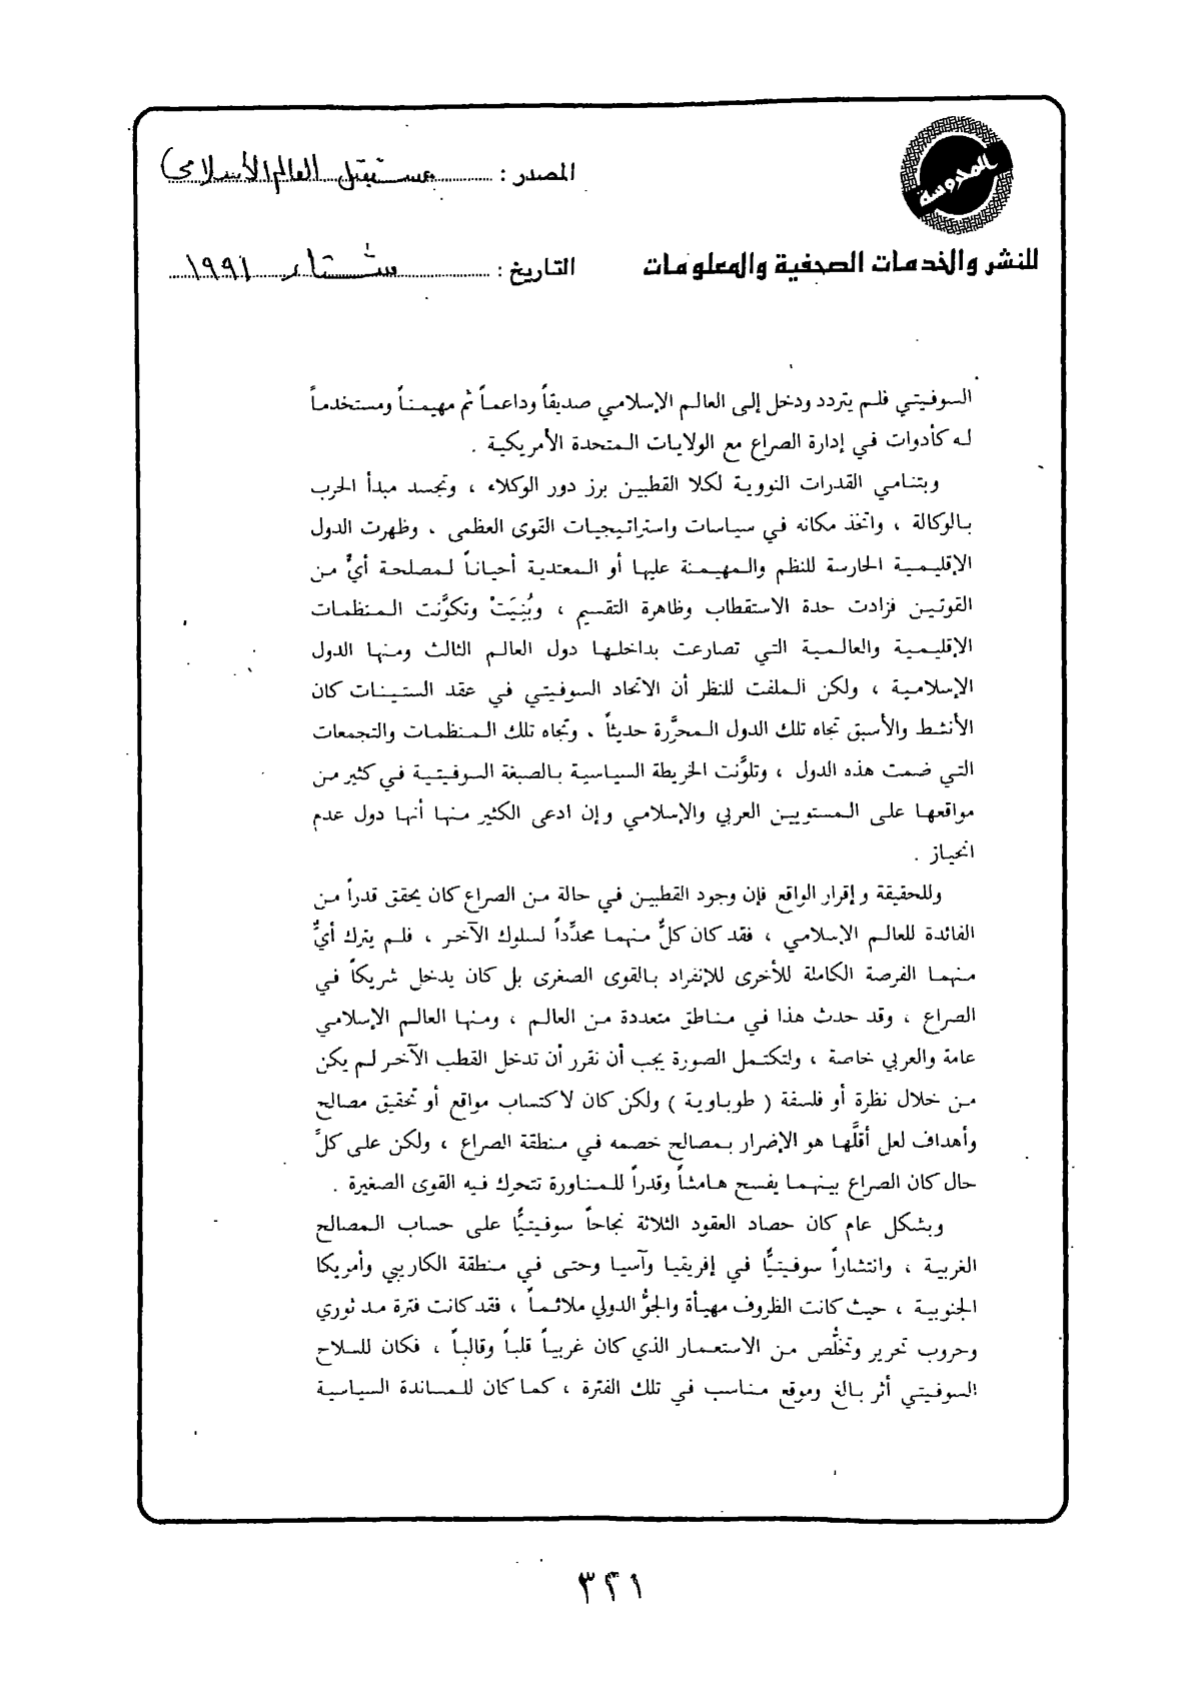 المحروسة
المصدر : مستقبل العالم الإسلامى
للنشر والخدمات الصحفية والمعلومات
التاريخ : شتاء ١٩٩١
السوفيتي فلم يتردد ودخل إلى العالم الإسلامي صديقاً وداعماً ثم مهيمناً ومستخدماً
له كأدوات في إدارة الصراع مع الولايات المتحدة الأمريكية .
وبتنامي القدرات النووية لكلا القطبين برز دور الوكلاء ، وتجسد مبدأ الحرب
بالوكالة ، واتخذ مكانه في سياسات واستراتيجيات القوى العظمى . وظهرت الدول
الإقليمية الحارسة للنظم والمهيمنة عليها أو المعتدية أحياناً لمصلحة أيٍّ من
القوتين فزادت حدة الاستقطاب وظاهرة التقسيم ، وبُنِيَتْ وتكوَّنت المنظمات
الإقليمية والعالمية التي تصارعت بداخلها دول العالم الثالث ومنها الدول
الإسلامية ، ولكن الملفت للنظر أن الاتحاد السوفيتي في عقد الستينات كان
الأنشط والأسبق تجاه تلك الدول المحرَّرة حديثاً . وتجاه تلك المنظمات والتجمعات
التي ضمت هذه الدول ، وتلوَّنت الخريطة السياسية بالصبغة السوفيتية في كثير من
مواقعها على المستويين العربي والإسلامي وإن ادعى الكثير منها أنها دول عدم
انحياز .
وللحقيقة وإقرار الواقع فإن وجود القطبين في حالة من الصراع كان يحقق قدراً من
الفائدة للعالم الإسلامي ، فقد كان كلٌّ منهما محدِّداً لسلوك الآخر ، فلم يترك أيٌّ
منهما الفرصة الكاملة للأخرى للإنفراد بالقوى الصغرى بل كان يدخل شريكاً في
الصراع ، وقد حدث هذا في مناطق متعددة من العالم ، ومنها العالم الإسلامي
عامة والعربي خاصة ، ولتكتمل الصورة يجب أن نقرر أن تدخل القطب الآخر لم يكن
من خلال نظرة أو فلسفة ( طوباوية ) ولكن كان لاكتساب مواقع أو تحقيق مصالح
وأهداف لعل أقلَّها هو الإضرار بمصالح خصمه في منطقة الصراع ، ولكن على كلِّ
حال كان الصراع بينهما يفسح هامشاً وقدراً للمناورة تتحرك فيه القوى الصغيرة .
وبشكل عام كان حصاد العقود الثلاثة نجاحاً سوفيتيًّا على حساب المصالح
الغربية ، وانتشاراً سوفيتيًّا في إفريقيا وآسيا وحتى في منطقة الكاريبي وأمريكا
الجنوبية ، حيث كانت الظروف مهيأة والجوُّ الدولي ملائماً ، فقد كانت فترة مد ثوري
وحروب تحرير وتخلُّص من الاستعمار الذي كان غربياً قلباً وقالباً ، فكان للسلاح
السوفيتي أثر بالغ وموقع مناسب في تلك الفترة ، كما كان للمساندة السياسية
٣٢١